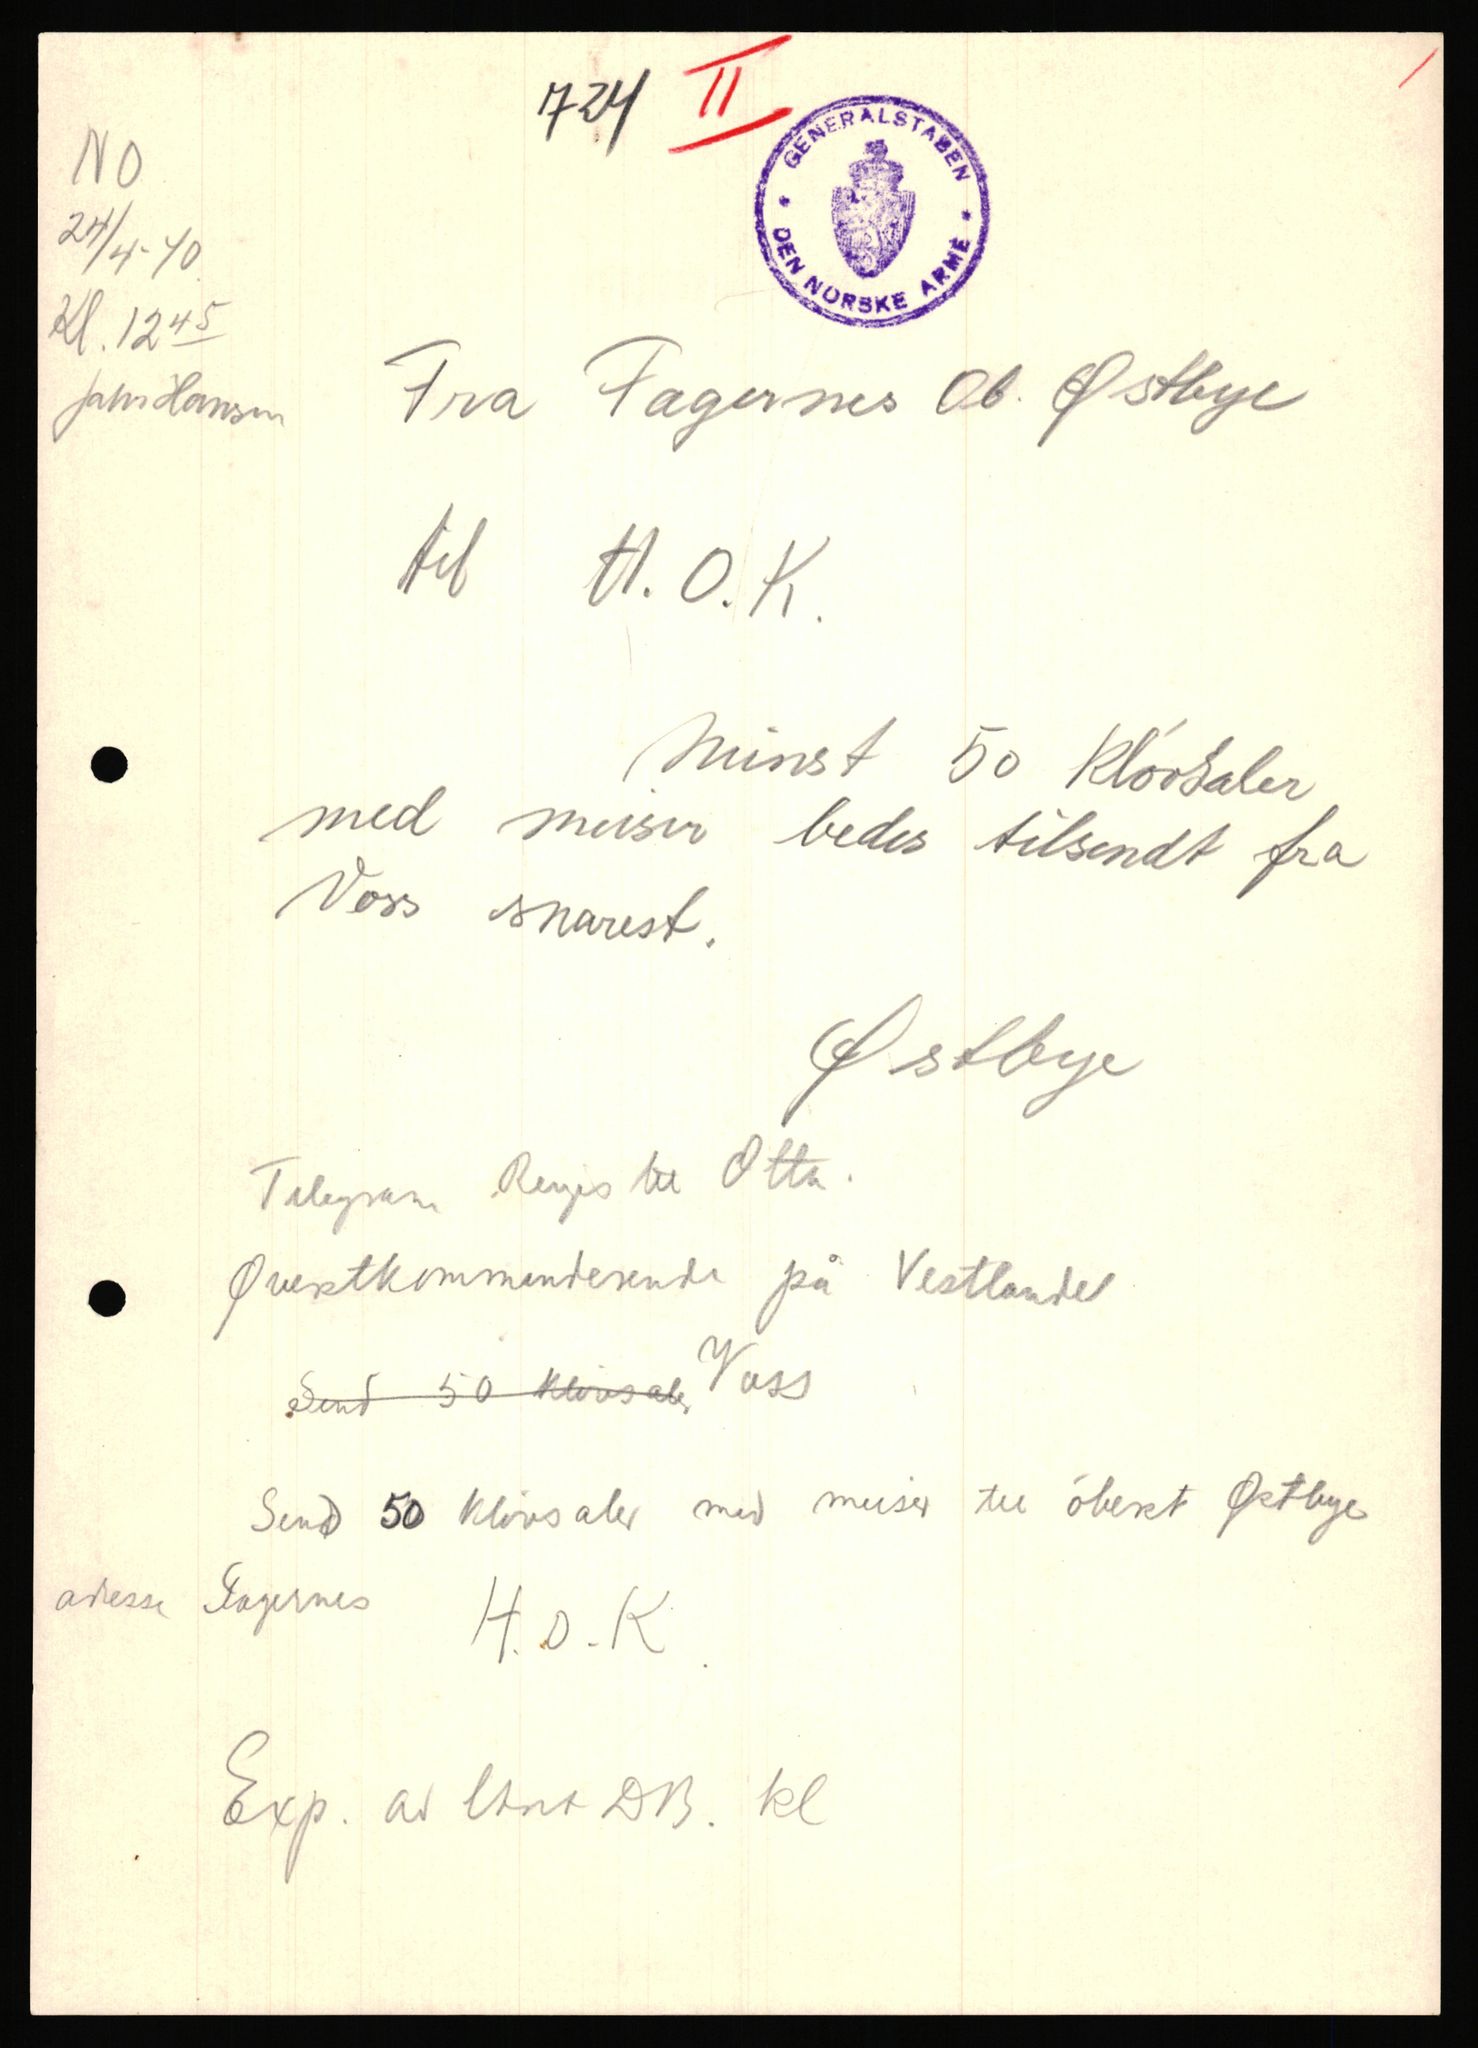 724 II
GENERALSTABEN
DEN NORSKE ARME
NO
24/4-40
Kl. 12 45
Fra Fagernes Ob. Østbye
til H.O.K.
Minst 50 kløvsaler
med meiser bedes tilsendt fra
Voss snarest.
Østbye
Telegram til Otta.
Øverstkommanderende på Vestlandet
Send 50 kløvsaler Voss
Send 50 kløvsaler med meiser til oberst Østbye
adresse Fagernes
H.O.K.
Exp. av DB. kl